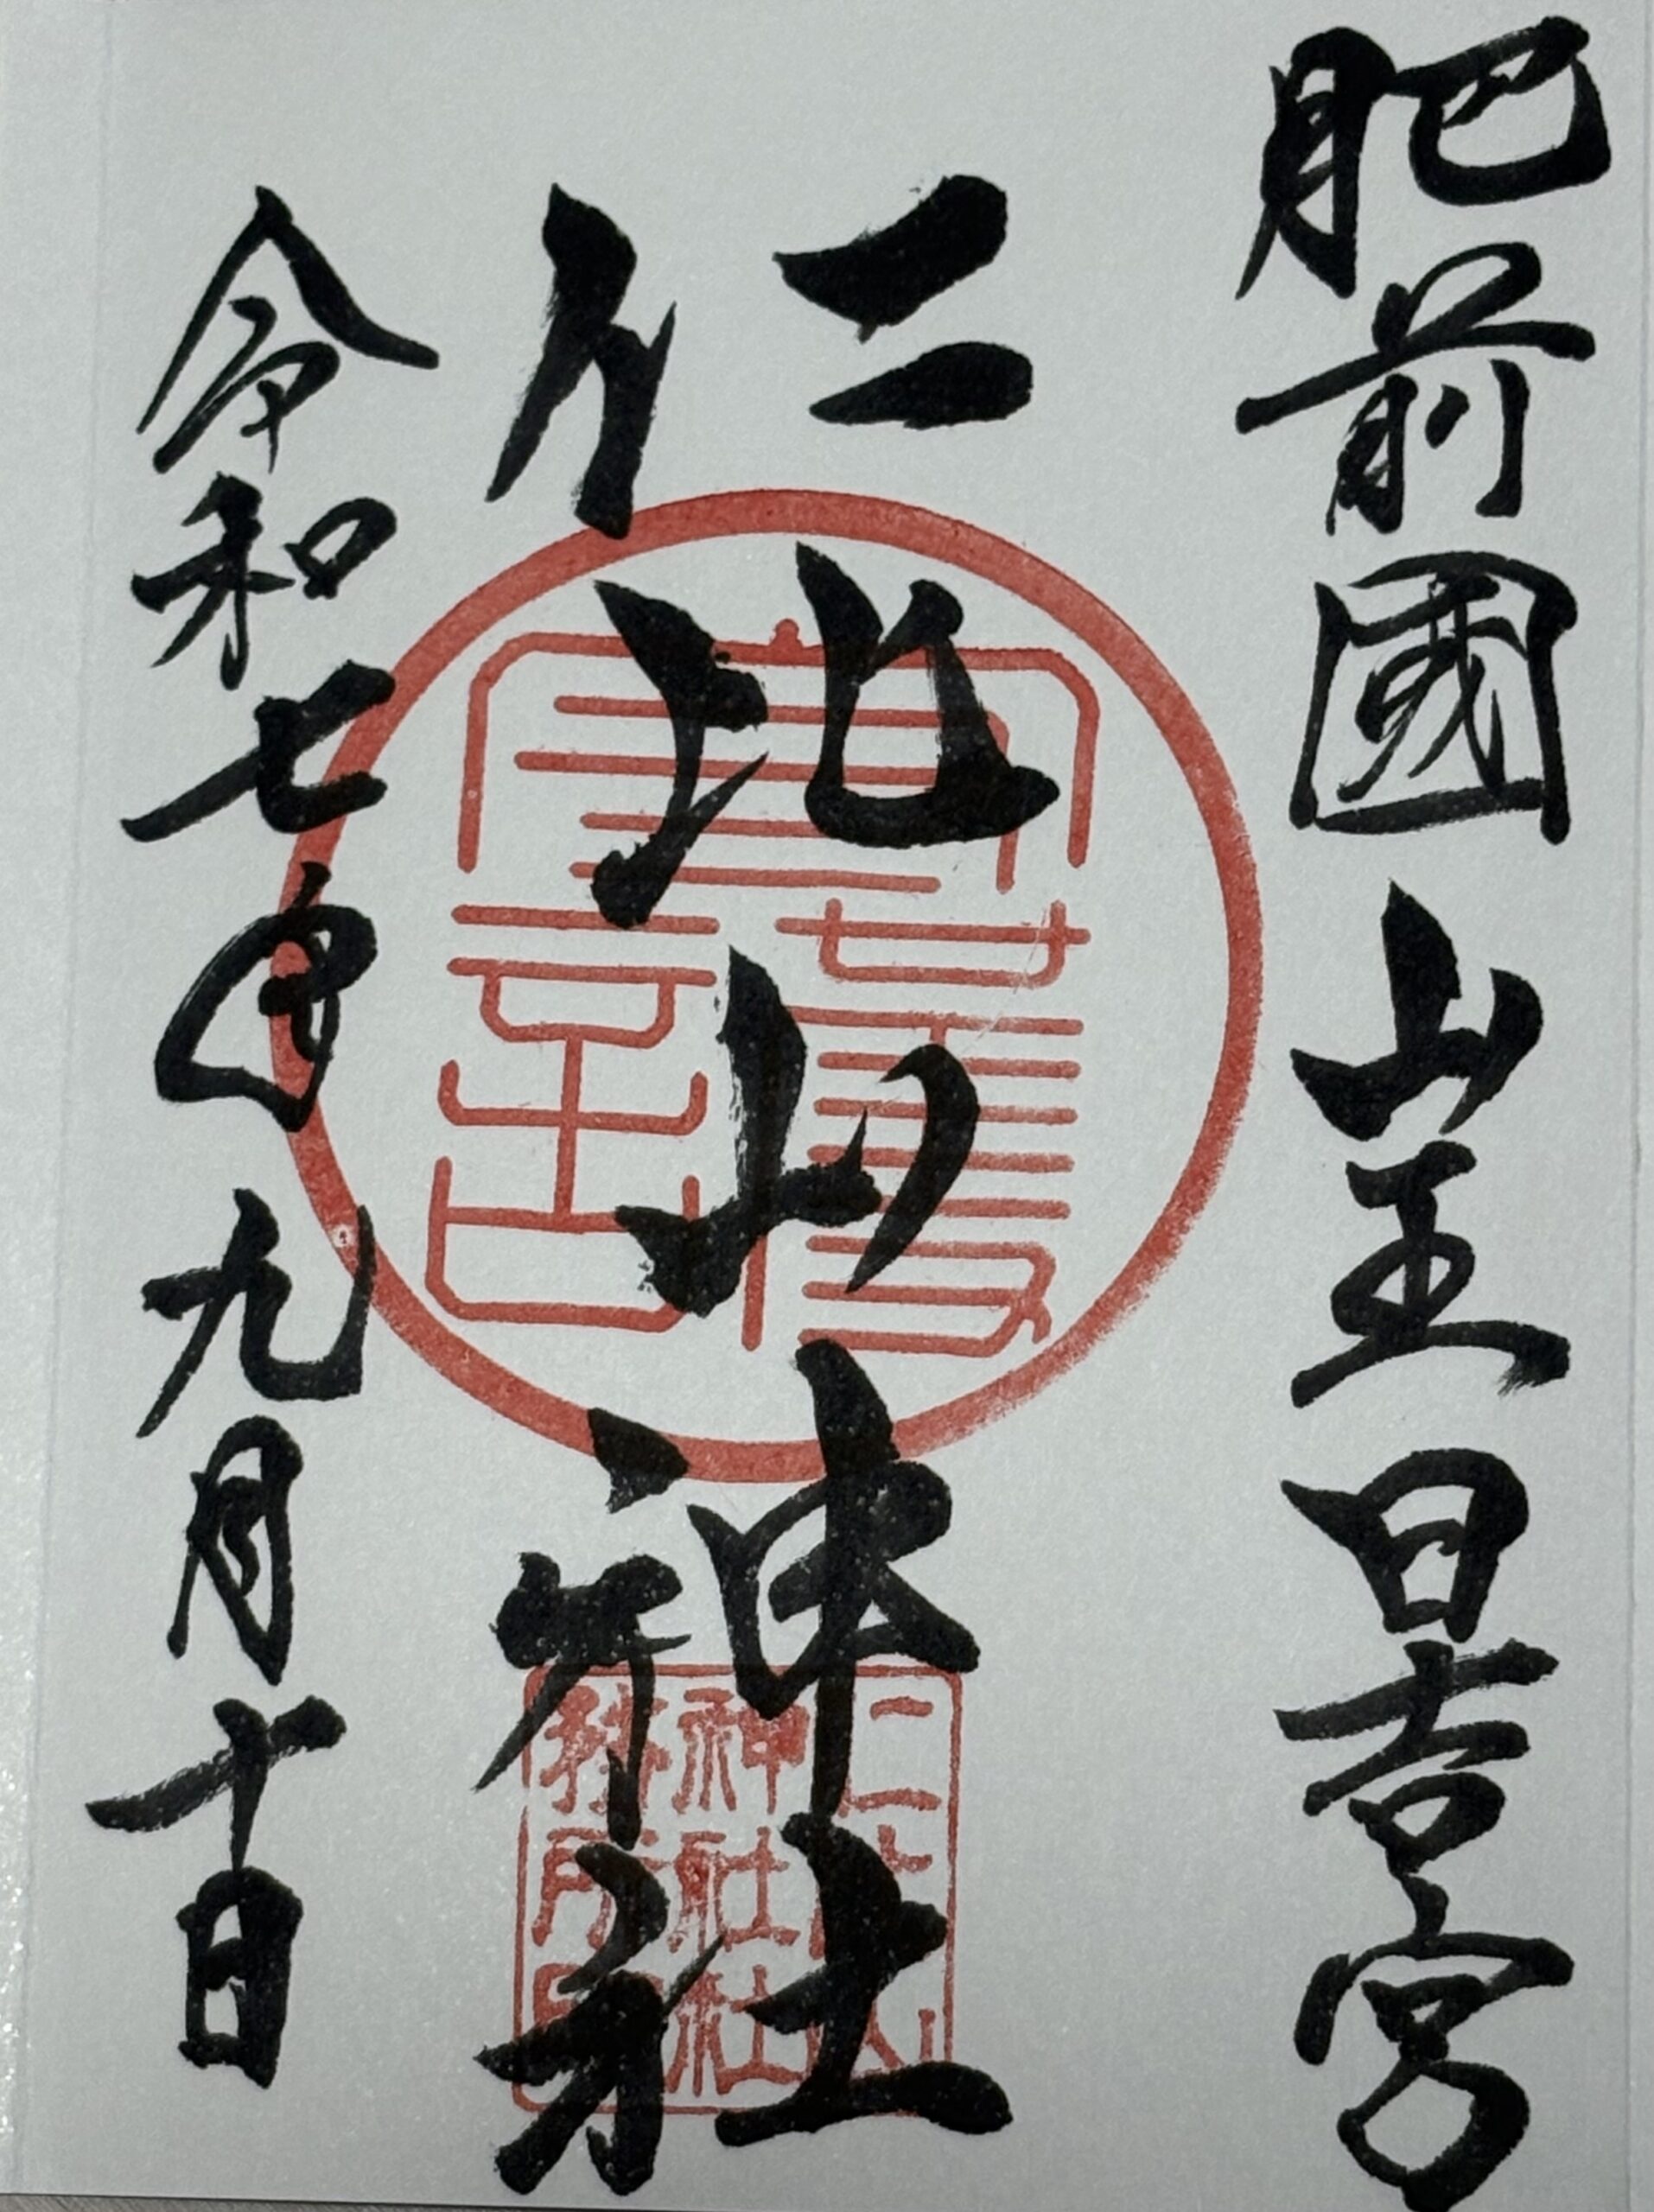 肥前國山王日吉宮
仁比山神社
令和七年九月十日
仁比山
神社社
務所印